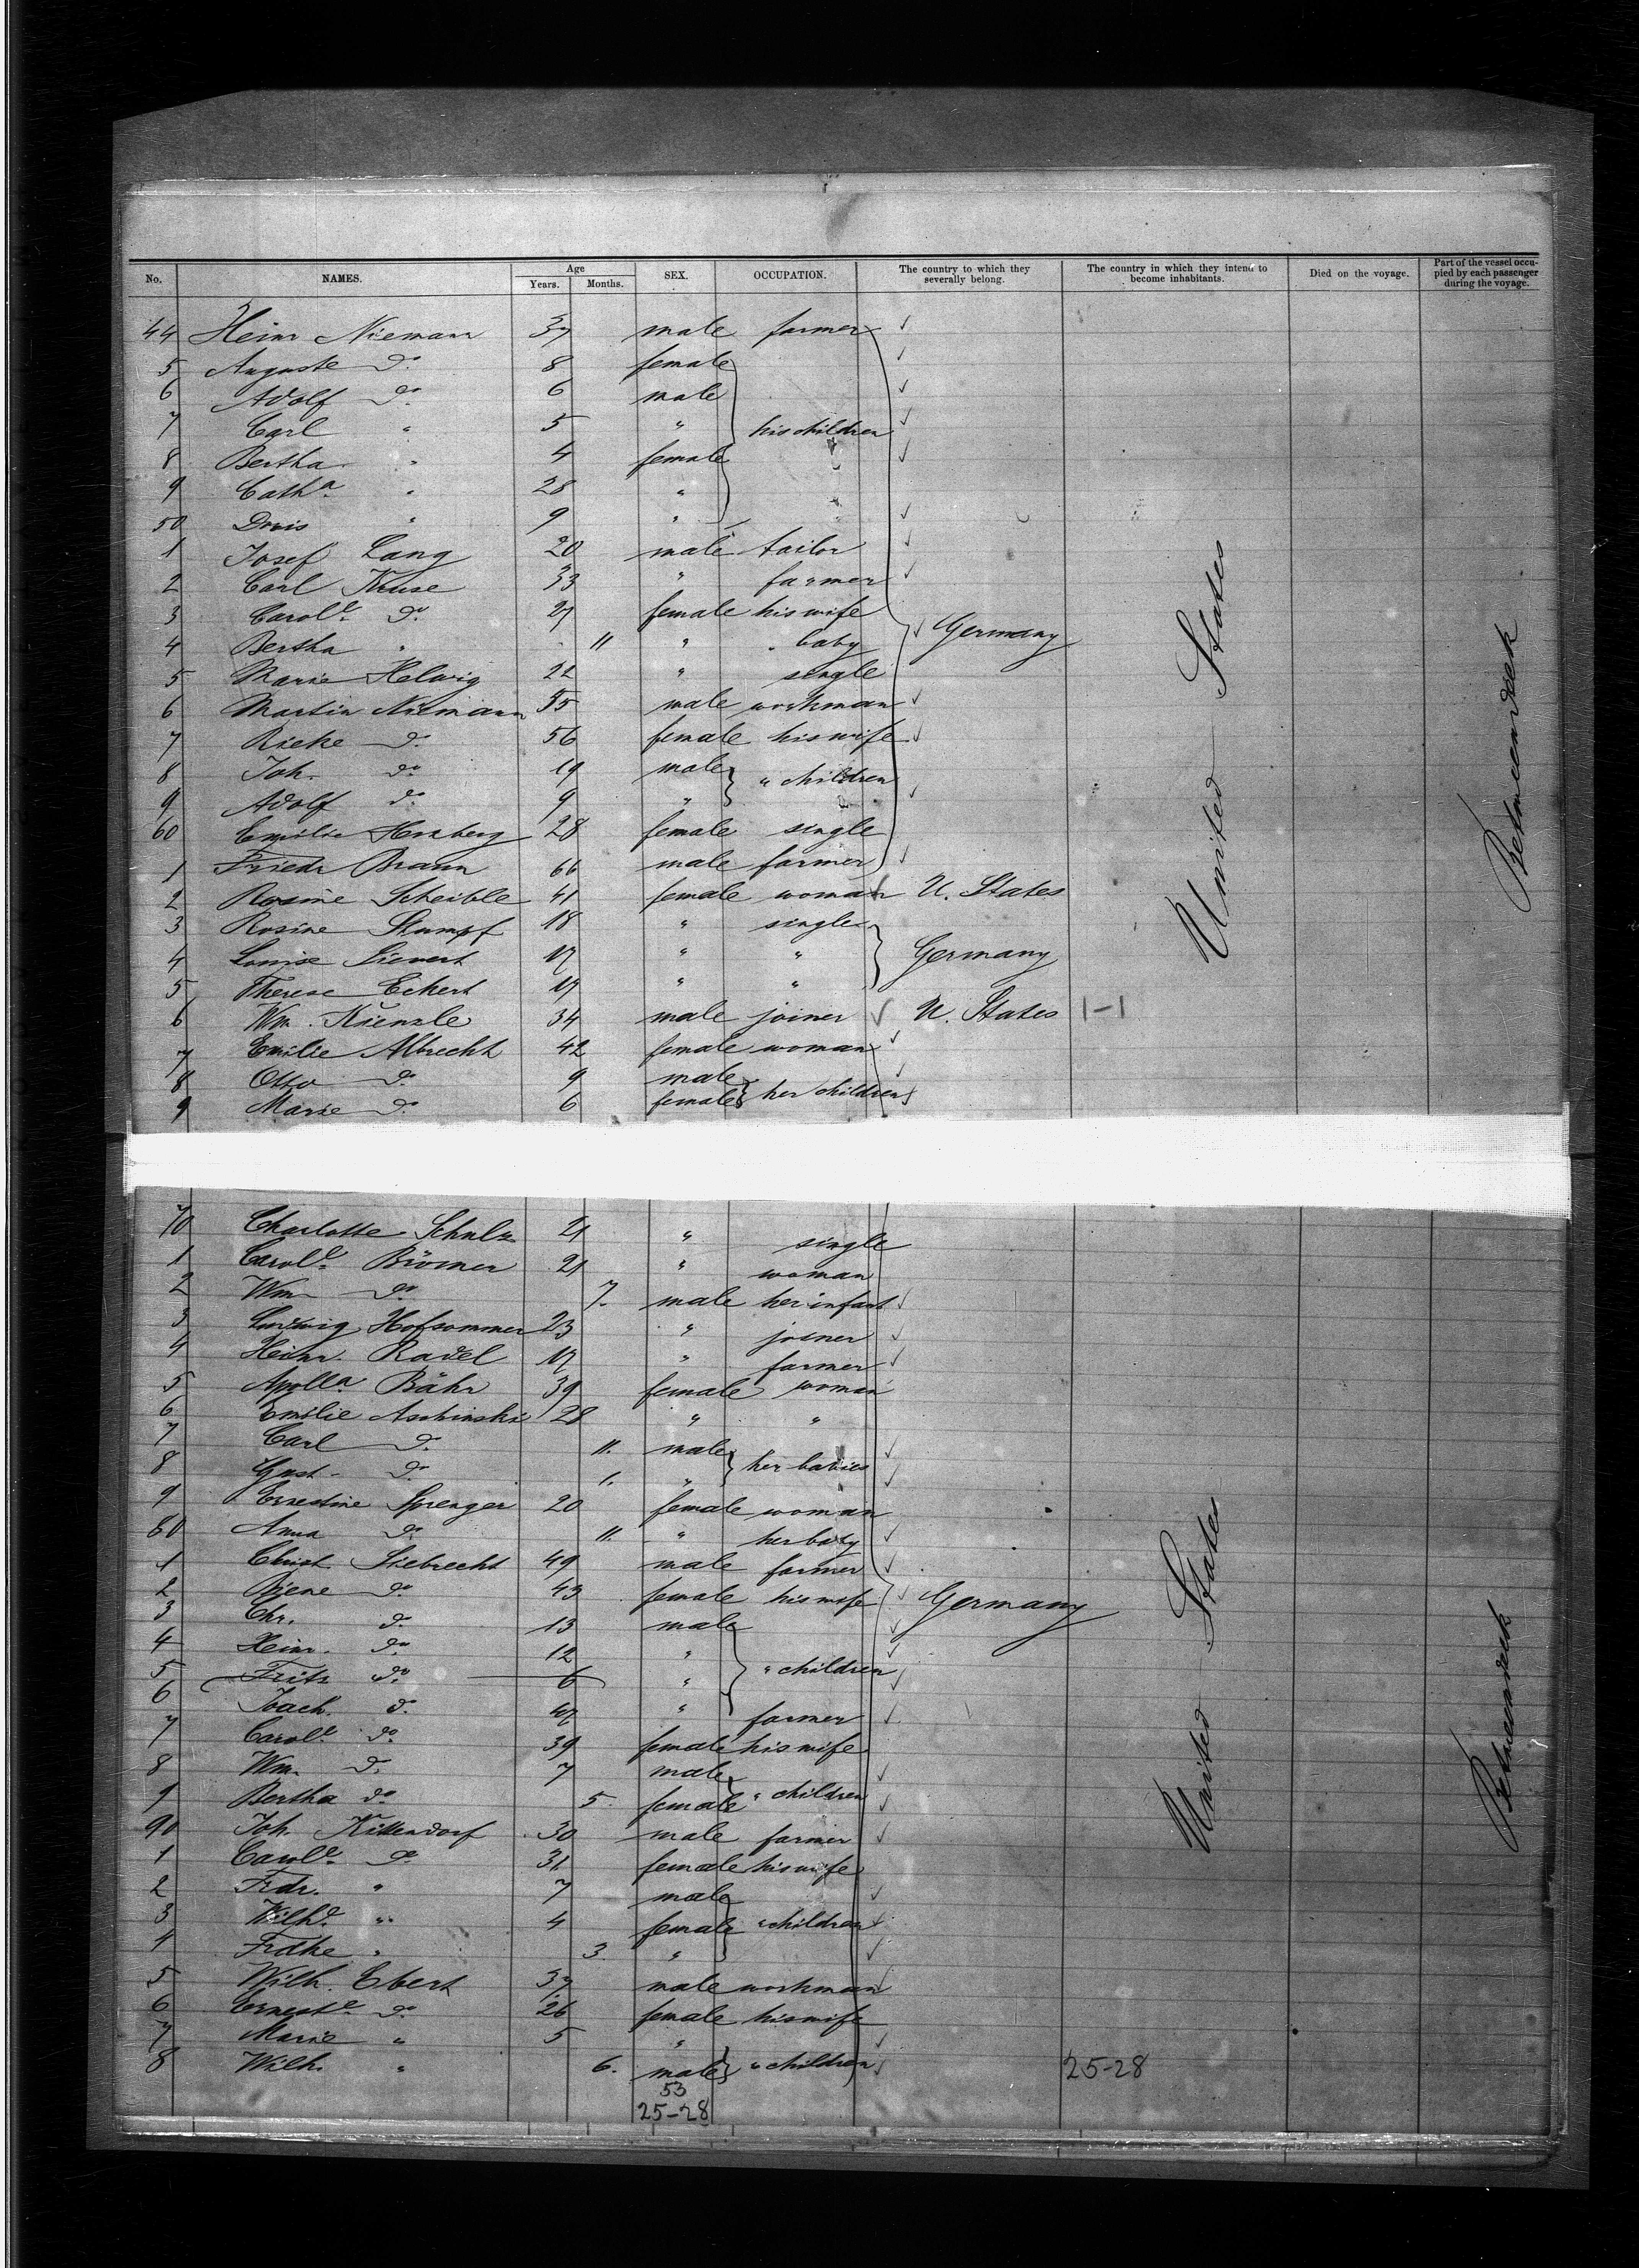 No. NAMES. Age Years. Months. SEX. OCCUPATION. The country to which they severally belong. The country in which they intend to become inhabitants. Died on the voyage. Part of the vessel occupied by each passenger during the voyage.
44 Heinr Niemann 37 male farmer
5 Auguste do 8 female
6 Adolf do 6 male
7 Carl " 5 " his children
8 Bertha " 4 female "
9 Catha " 28 " "
50 Doris " 9 " "
1 Josef Lang 20 male tailor
2 Carl Kruse 33 " farmer
3 Carole do 27 female his wife
4 Bertha " 11 " " baby Germany
5 Marie Helwig 22 " single
6 Martin Niemann 55 male workman
7 Rieke do 56 female his wife
8 Joh. do 19 male " children
9 Adolf do 9 "
60 Emilie Herzberg 28 female single
1 Friedr Braun 66 male farmer
2 Rosine Scheible 41 female woman U. States
3 Rosine Stumpf 18 " single
4 Louise Sievert 17 " " Germany
5 Therese Eckert 19 " "
6 Wm. Kienzle 34 male joiner U. States 1-1
7 Emilie Albrecht 42 female woman
8 Otto do 9 male her children
9 Marie do 6 female
United States
Betweendeck
70 Charlotte Schulz 21 " single
1 Carole Börner 21 " woman
2 Wm do 7. male her infant
3 Ludwig Hofsommer 23 " joiner
4 Heinr. Radel 17 " farmer
5 Apolla Bähr 39 female woman
6 Emilie Aschinski 28 " "
7 Carl do 11. male her babies
8 Gust. do 1. "
9 Ernestine Sprenger 20 female woman
80 Anna do 11. " her baby
1 Christ Siebrecht 49 male farmer
2 do 43 female his wife Germany
3 Chr. do 13 male
4 Heinr. do 12 "
5 Fritz do 6 " " children
6 Joach. do 47 " farmer
7 Carole do 39 female his wife
8 Wm. do 7 male
9 Bertha do 5. female " children
90 Joh. Kittendorf 30 male farmer
1 Carole do 31 female his wife
2 Frdr. " 7 male
3 Wilhe " 4 female " children
4 Frdke " 3 "
5 Wilh. Ebert 37 male workman
6 Erneste do 26 female his wife
7 Marie " 5 "
8 Wilh. " 6. male " children 25-28
53
25-28
United States
Betweendeck